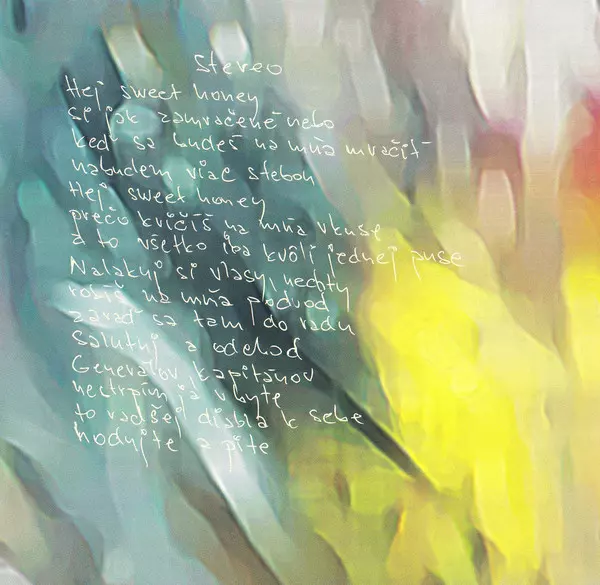 Stereo
Hej sweet honey
si jak zamračené nebo
keď sa budeš na mňa mračiť
nebudem viac s tebou
Hej sweet honey
prečo kvičíš na mňa vkuse
a to všetko iba kvôli jednej puse
Nalakuj si vlasy, nechty
robíš na mňa podvod
zaraď sa tam do radu
salutuj a odchod
Generálov kapitánov
nestrpím já v byte
to radšej diabla k sebe
hodujte a pite